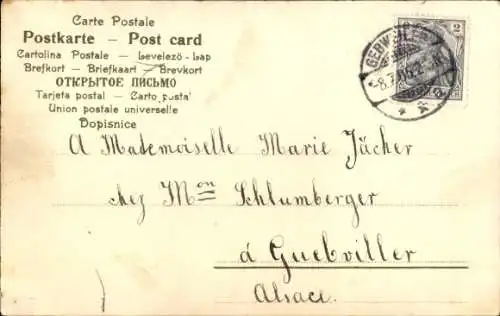 Carte Postale
Postkarte – Post card
Cartolina Postale – Levelező-Lap
Brefkort – Briefkaart – Brevkort
ОТКРЫТОЕ ПИСЬМО
Tarjeta postal – Carto posta
Union postale universelle
Dopisnice
2
A Mademoiselle Marie Jächer
chez Mon Schlumberger
á Guebviller
Alsace.